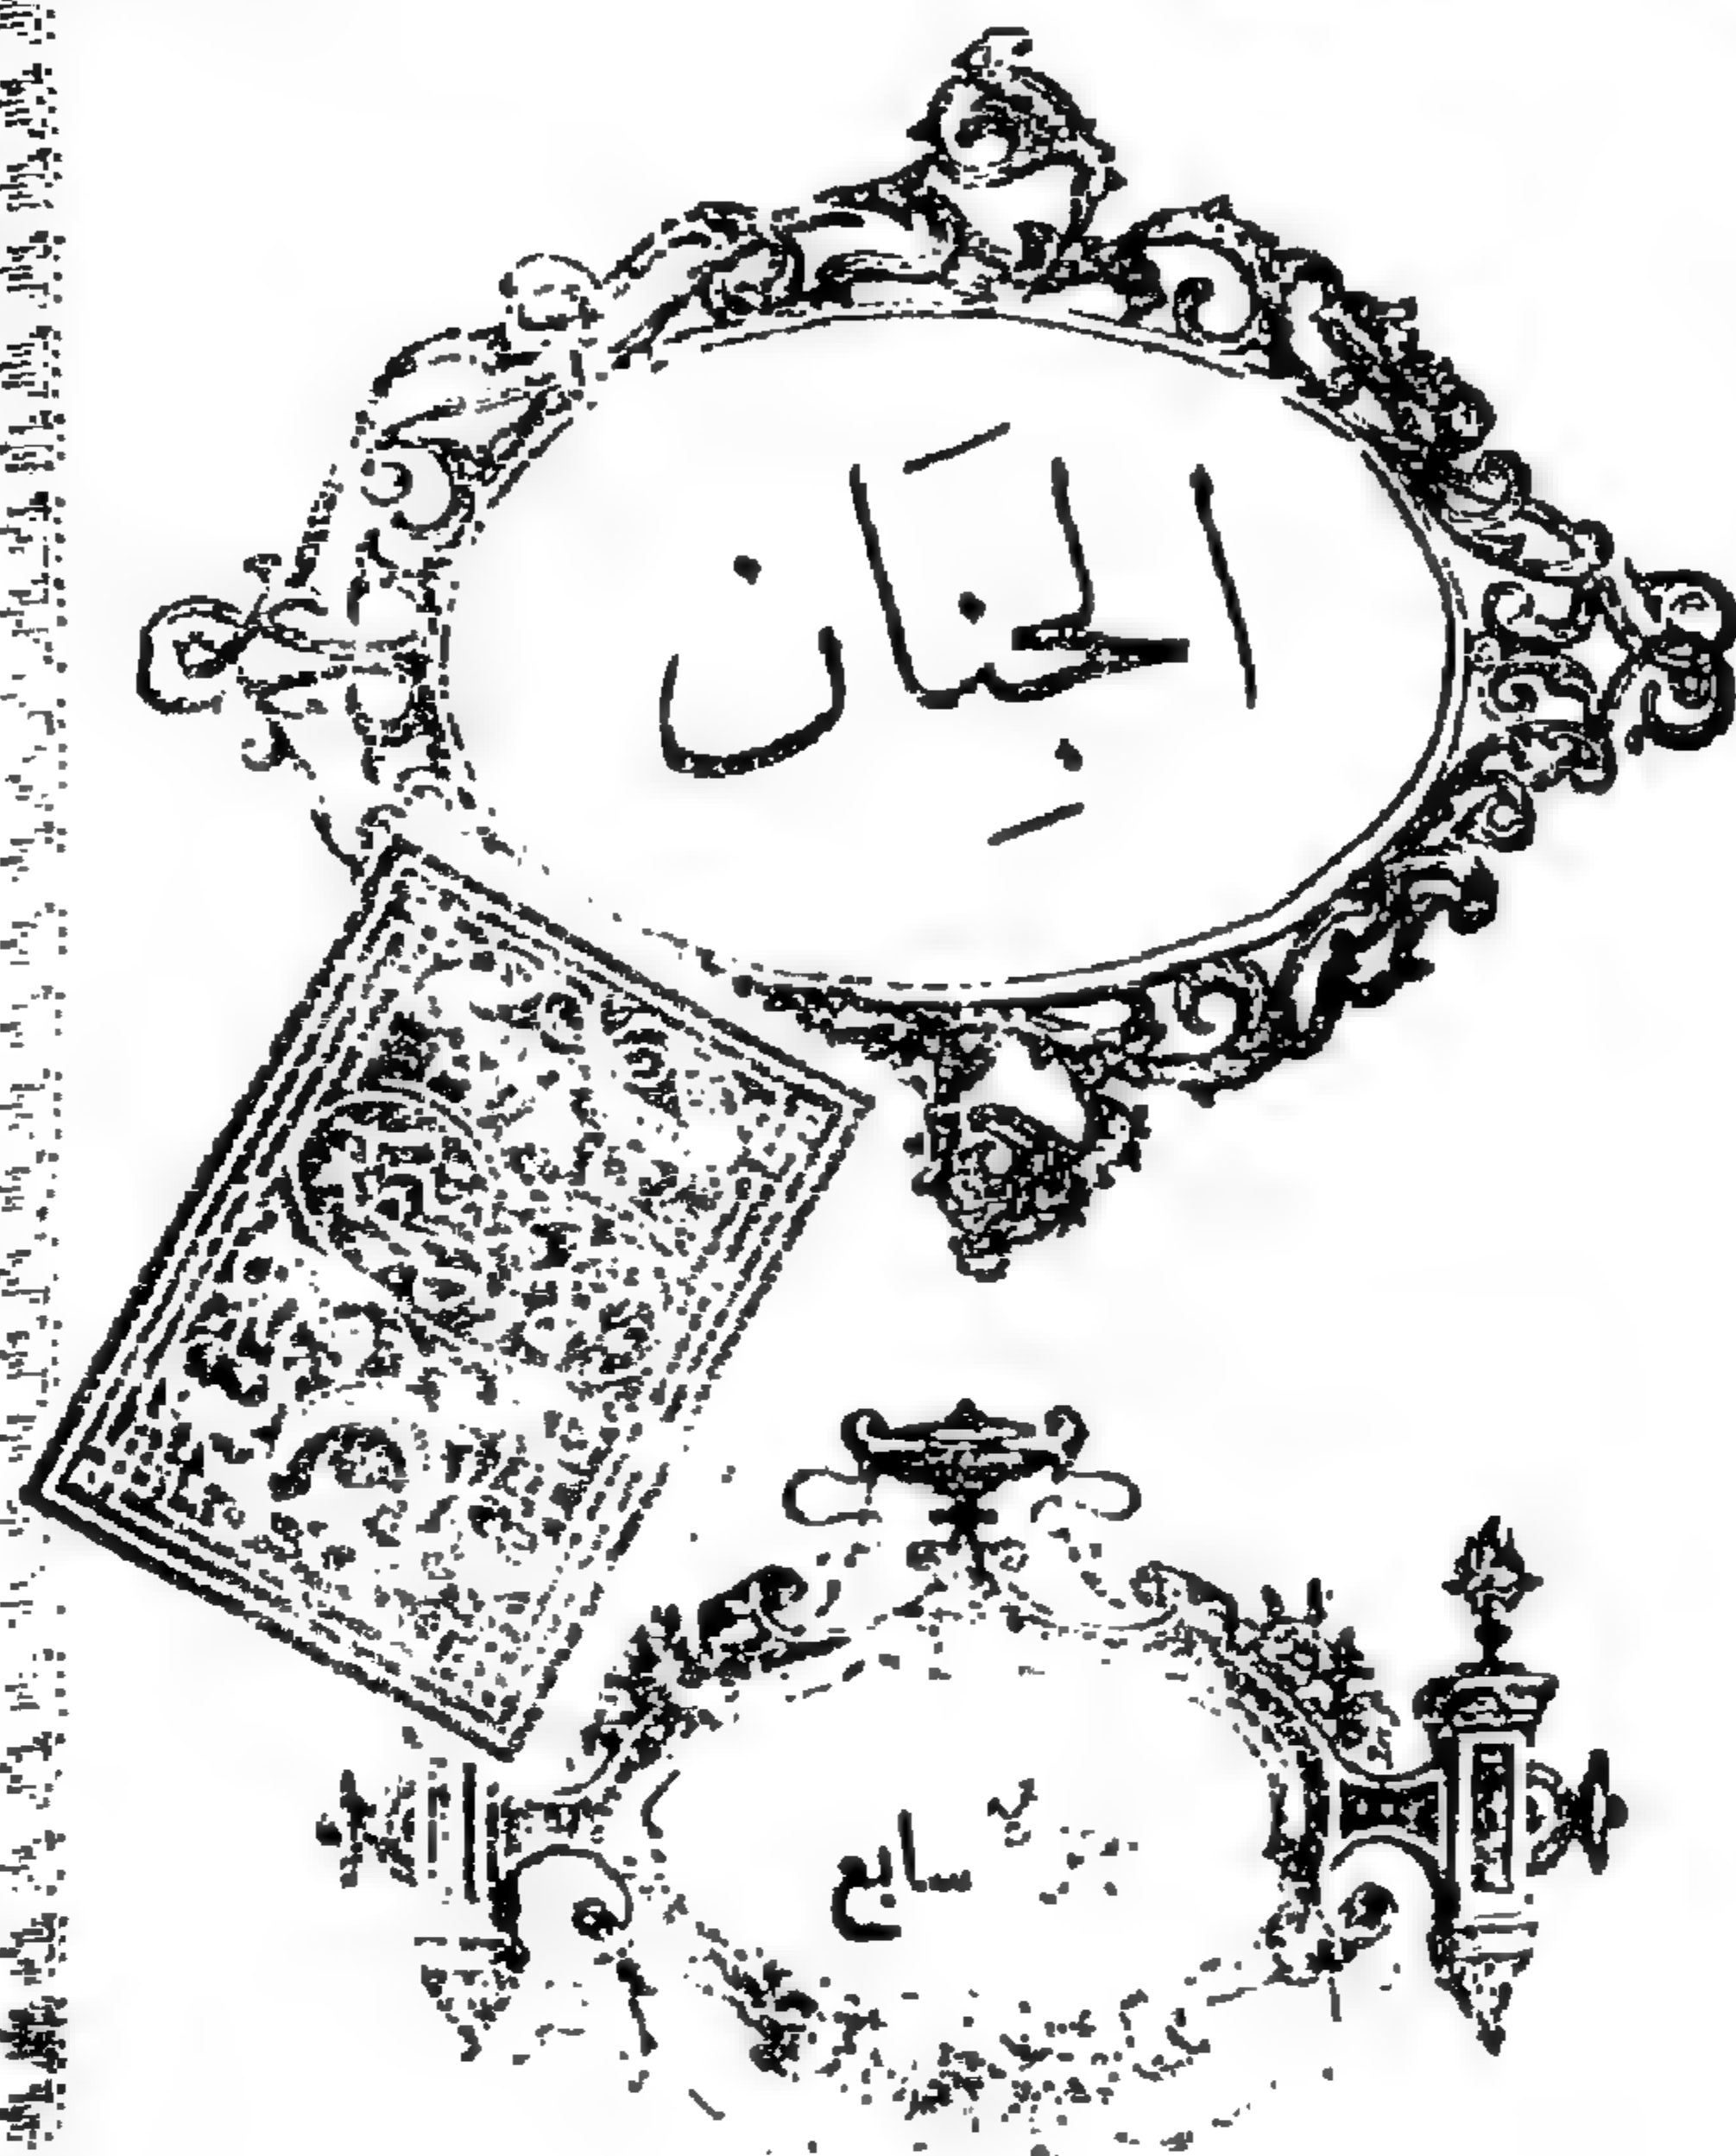 الجِنَان
سابع